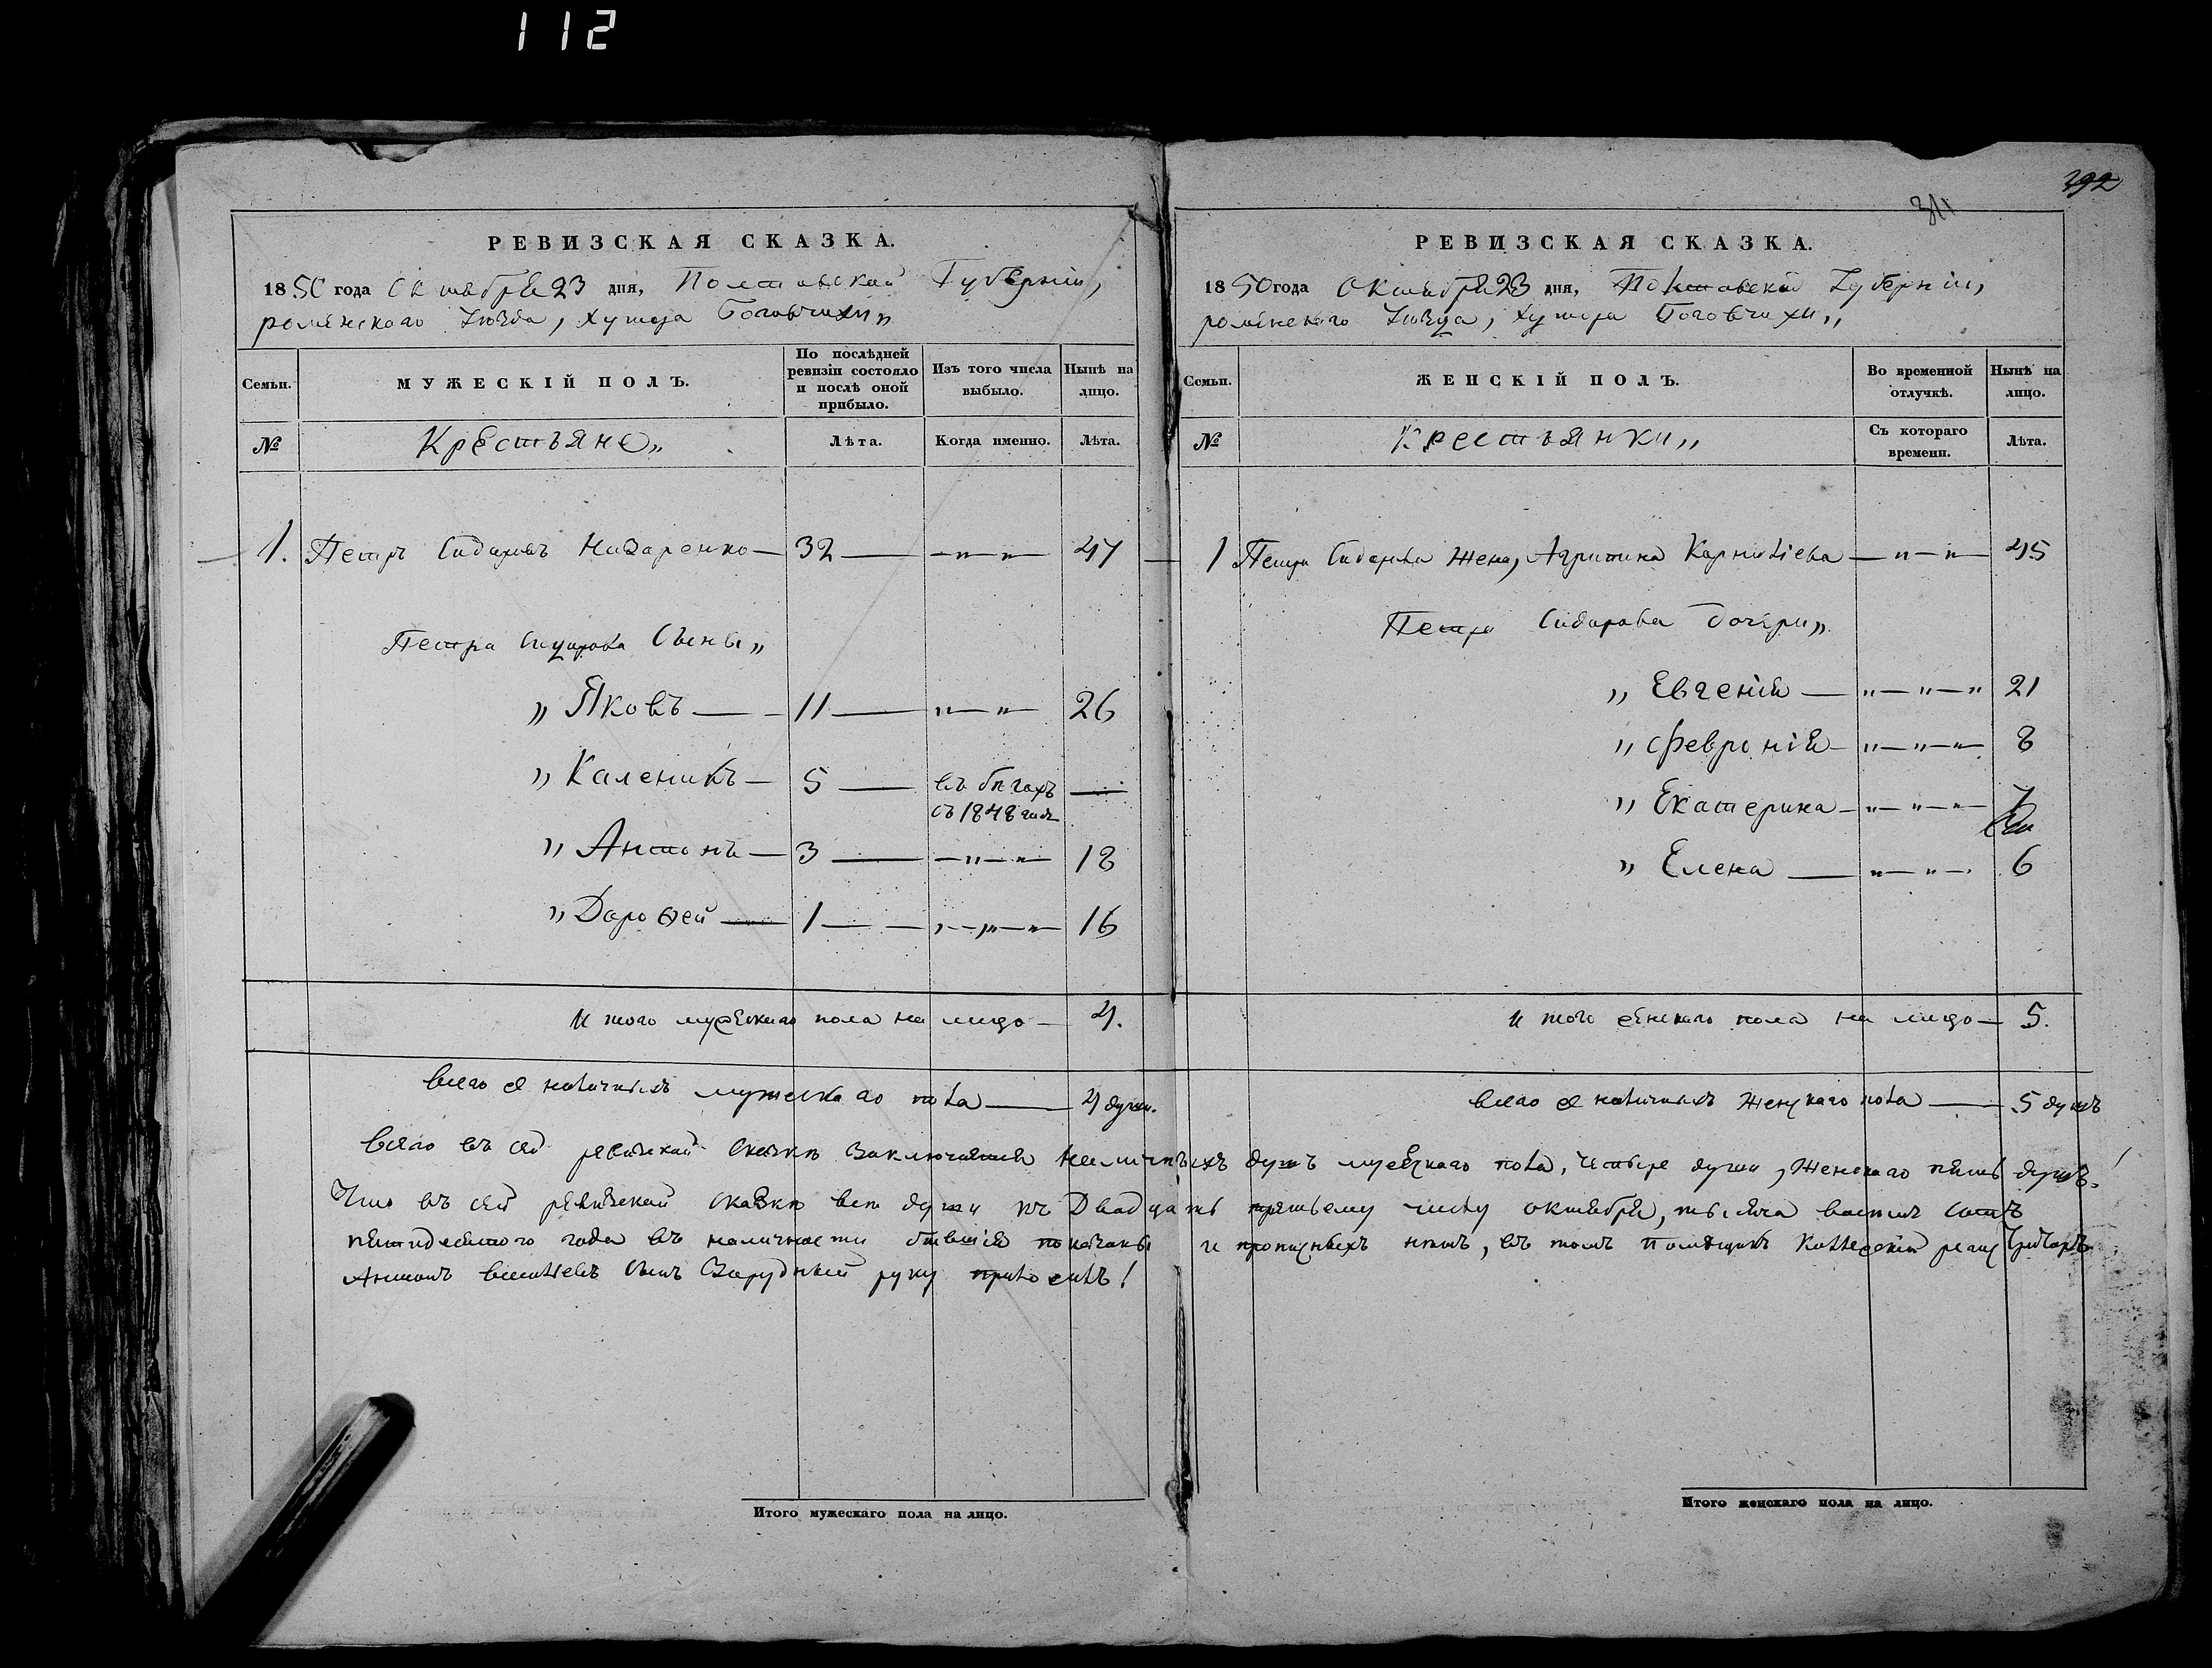 112
392
311
РЕВИЗСКАЯ СКАЗКА.
1850 года Октября 23 дня, Полтавской Губерніи,
роменскаго Уѣзда, хутора Боговчихи„
Семьи.
МУЖЕСКІЙ ПОЛЪ.
По послѣдней ревизіи состояло и послѣ оной прибыло.
Изъ того числа выбыло.
Нынѣ на лицо.
№
Крестьяне„
Лѣта.
Когда именно.
Лѣта.
1. Петръ Сидоровъ Назаренко — 32 — — „ „ — 47
Петра Сидорова Сыны„
„ Яковъ — 11 — „ — „ — 26
„ Каленикъ — 5 — въ бѣгахъ —
съ 1848 года
„ Антонъ — 3 — — „ — „ — 18
„ Дарофей — 1 — „ — „ — „ — 16
И того мужескаго пола на лицо — 4.
всего наличныхъ мужескаго пола — 4 души.
РЕВИЗСКАЯ СКАЗКА.
1850 года Октября 23 дня, Полтавской Губерніи,
роменскаго Уѣзда, хутора Боговчихи„
Семьи.
ЖЕНСКІЙ ПОЛЪ.
Во временной отлучкѣ.
Нынѣ на лицо.
№
Крестьянки„
Съ котораго времени.
Лѣта.
1 Петра Сидорова жена, Агрипина Карнилiева — „ — „ — 45
Петра Сидорова дочери„
„ Евгенія — „ — „ — „ 21
„ Февронія — „ — „ — „ — 8
„ Екатерина — „ — „ — „ — 7
„ Елена — „ — „ — 6
И того женскаго пола на лицо — 5.
всего наличныхъ женскаго пола — 5 душъ
всего въ сей ревизской сказкѣ заключается наличныхъ душъ мужескаго пола, четыре души, женскаго пять душъ!
Что въ сей ревизской сказкѣ всѣ души къ Двадцать третьему числу октября, тысяча восемь сотъ
пятидесятого года въ наличности бывшія показаны и прописныхъ нѣтъ, въ томъ помѣщикъ Коллежскій
Антонъ Васильевъ Сынъ Зарудный руку приложилъ!
Итого мужескаго пола на лицо.
Итого женскаго пола на лицо.